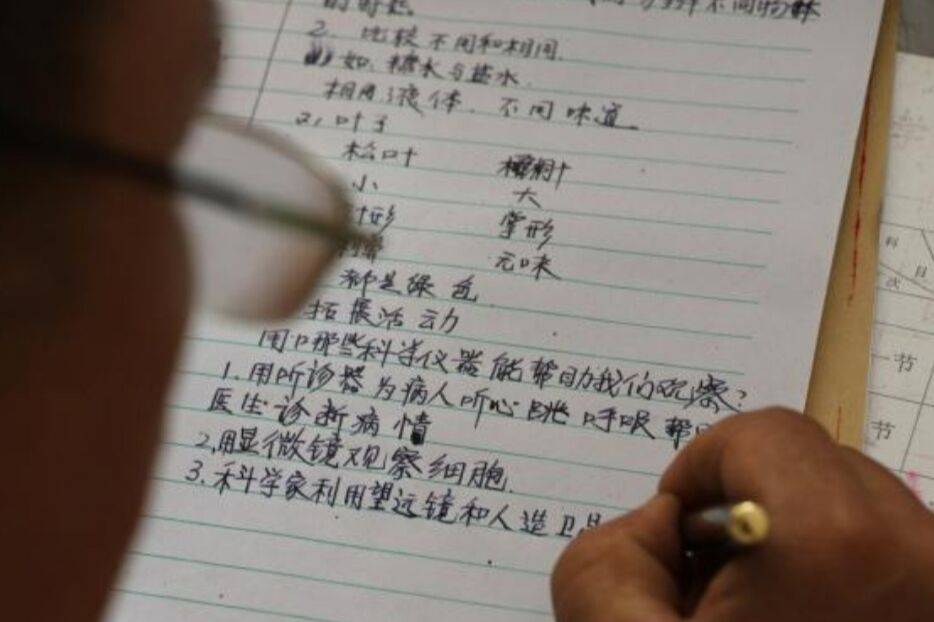 不同物体
2. 比较不同和相同.
如. 糖水与盐水.
相同液体. 不同味道
2, 叶子
松叶
小 大
形 掌形
无味
都是绿色
拓展活动
用 那些科学仪器能帮助我们观察?
1. 用听诊器为病人听心跳 呼吸 帮
医生诊断病情
2, 用显微镜观察细胞.
3. 科学家利用望远镜和人造卫
科
目
次
一节
节